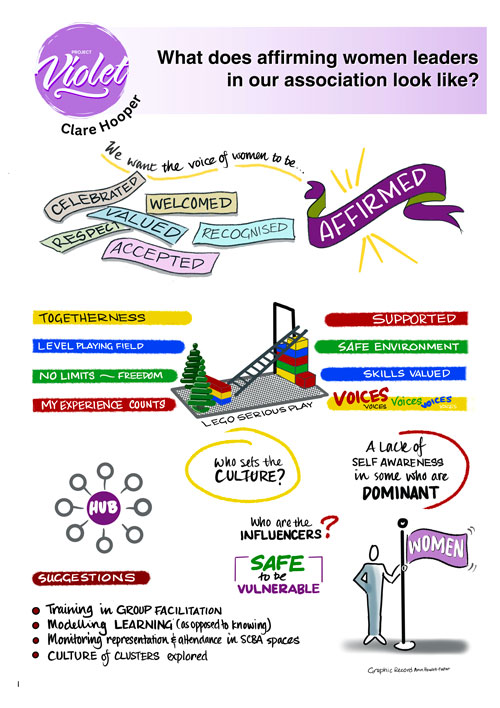 PROJECT
Violet
Clare Hooper
What does affirming women leaders
in our association look like?
We want the voice of women to be...
CELEBRATED
WELCOMED
VALUED
RESPECT
RECOGNISED
ACCEPTED
AFFIRMED
TOGETHERNESS
LEVEL PLAYING FIELD
NO LIMITS ~ FREEDOM
MY EXPERIENCE COUNTS
LEGO SERIOUS PLAY
SUPPORTED
SAFE ENVIRONMENT
SKILLS VALUED
VOICES VOICES Voices VOICES VOICES
Who sets the
CULTURE?
A Lack of
SELF AWARENESS
in some who are
DOMINANT
HUB
Who are the
INFLUENCERS?
SAFE
to be
VULNERABLE
WOMEN
SUGGESTIONS
Training in GROUP FACILITATION
Modelling LEARNING (as opposed to knowing)
Monitoring representation & attendance in SCBA spaces
CULTURE of CLUSTERS explored
Graphic Record Ann
1